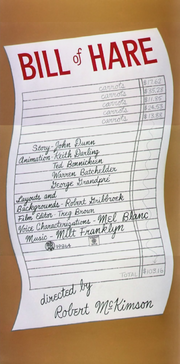 BILL of HARE
carrots
carrots
carrots
carrots
carrots
Story - John Dunn
Animation - Keith Darling
Ted Bonnicksen
Warren Batchelder
George Grandpré
Layouts and
Backgrounds - Robert Gribbroek
Film Editor Treg Brown
Voice Characterizations - Mel Blanc
Music - Milt Franklyn
TOTAL
directed by
Robert McKimson